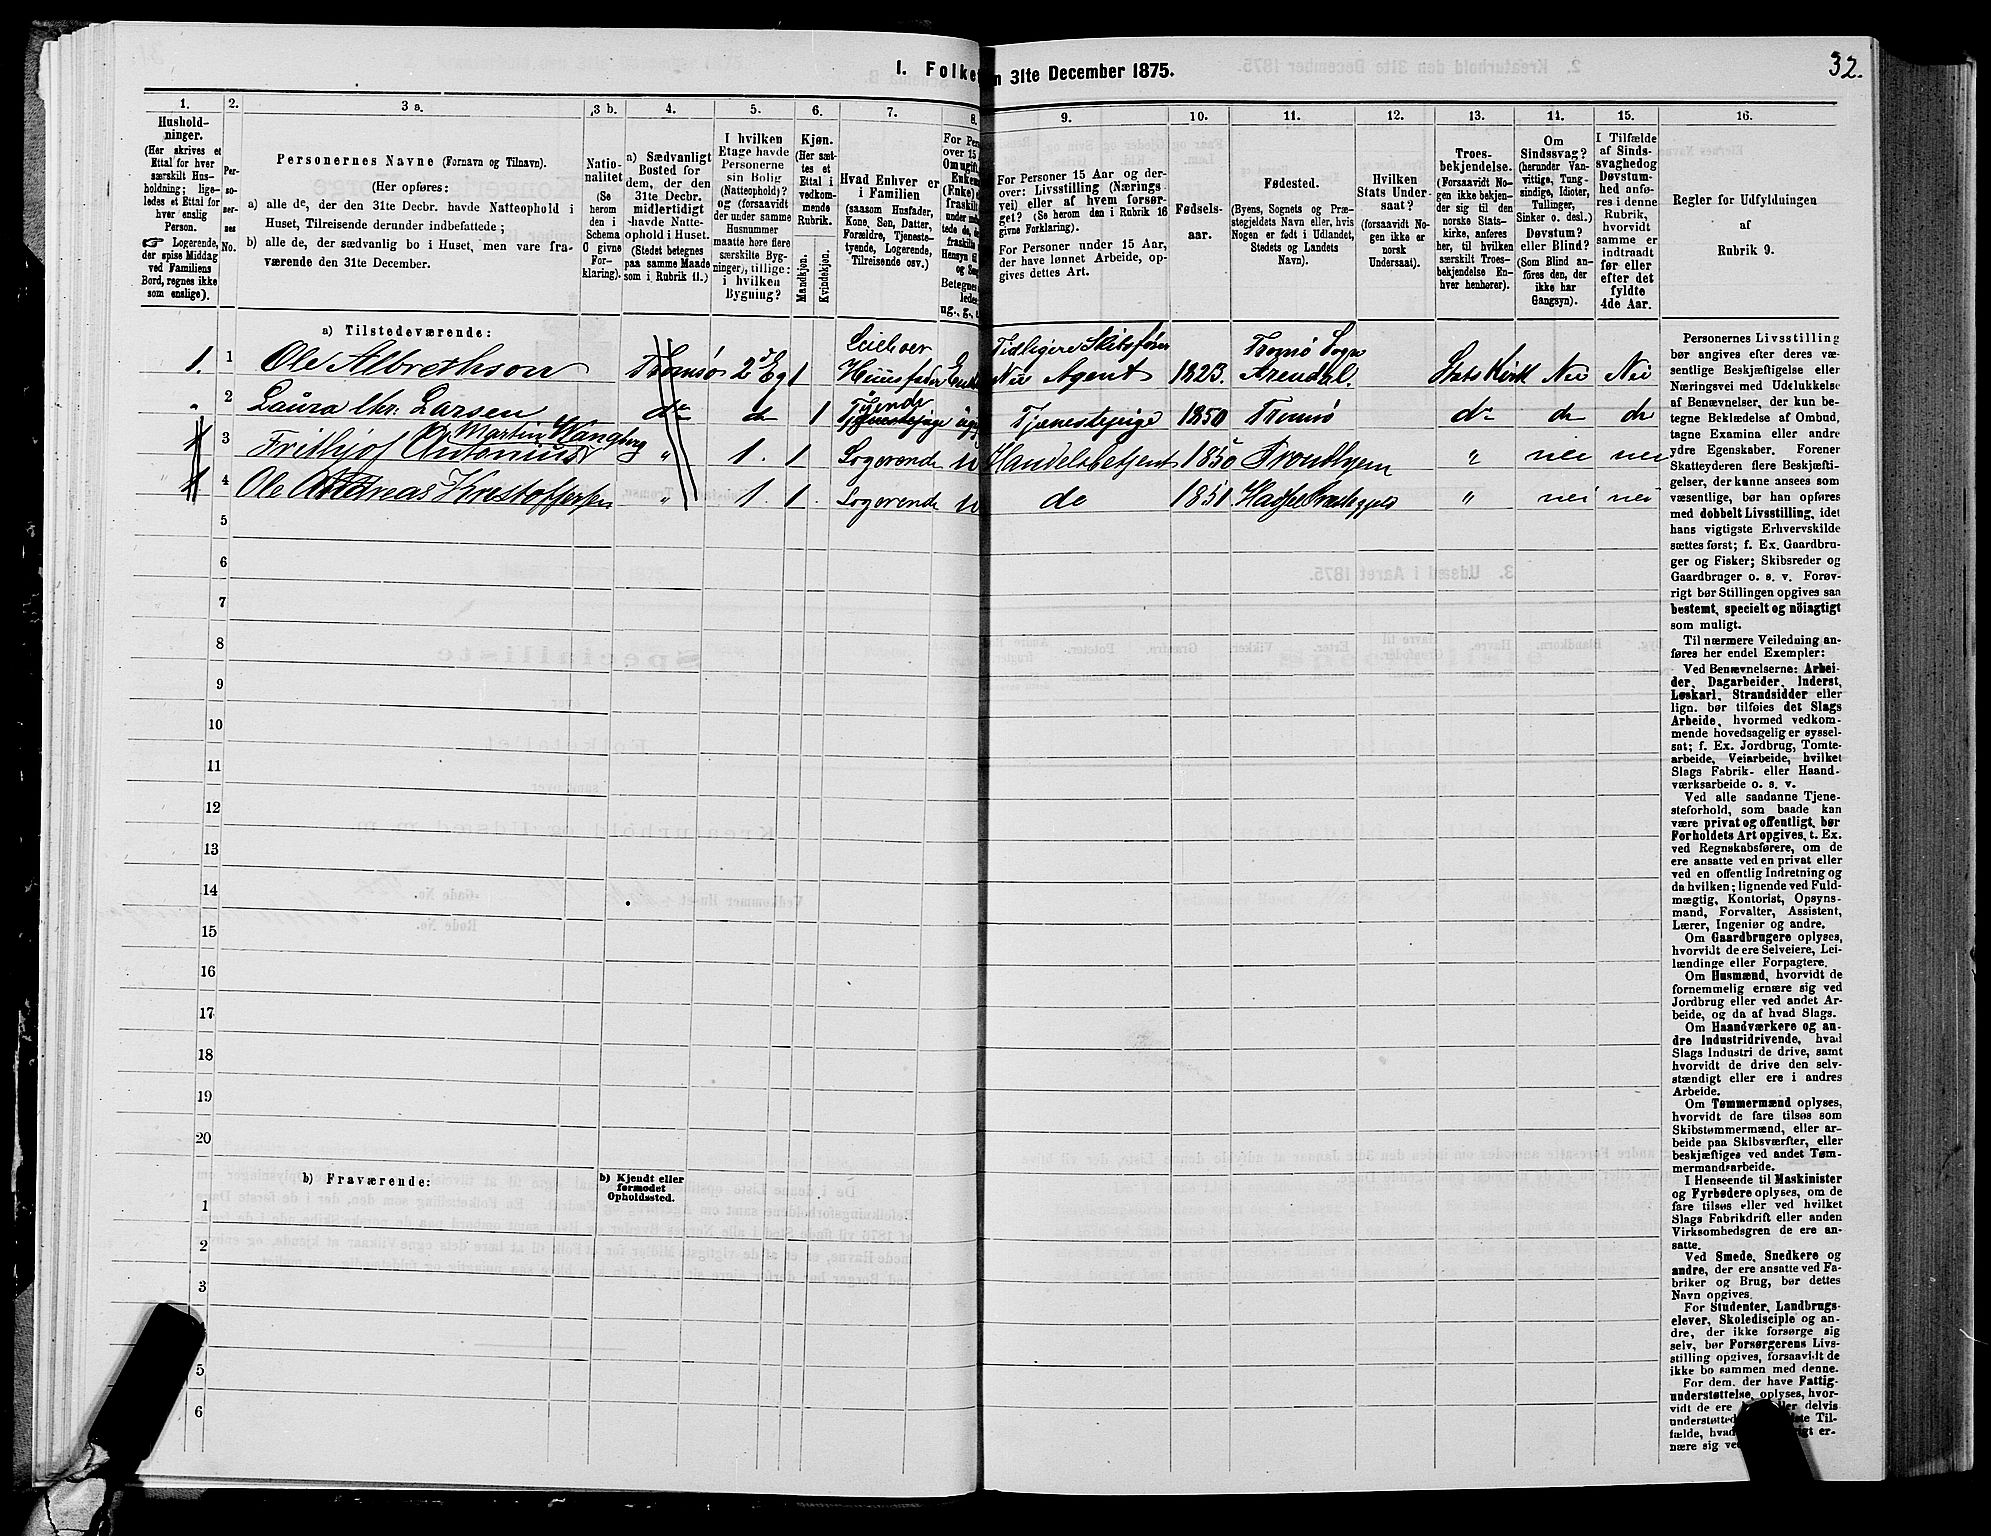 32.
1. Folke
n 31te December 1875.
1.
2.
3 a.
3 b.
4.
5.
6.
7.
8.
9.
10.
11.
12.
13.
14.
15.
16.
Hushold-
ninger.
(Her skrives et
Ettal for hver
særskilt Hus-
holdning; lige-
ledes et Ettal for
hver enslig
Person.
☞ Logerende,
der spise Middag
ved Familiens
Bord, regnes ikke
som enslige).
Per-
so-
ner-
nes
No.
Personernes Navne (Fornavn og Tilnavn).
(Her opføres:
a) alle de, der den 31te Decbr. havde Natteophold i
Huset, Tilreisende derunder indbefattede;
b) alle de, der sædvanlig bo i Huset, men vare fra-
værende den 31te December.
Natio-
nalitet
(Se
herom
den i
Schema
O givne
For-
klaring).
a) Sædvanligt
Bosted for
dem, der den
31te Decbr.
midlertidigt
havde Natte-
ophold i Huset.
(Stedet betegnes
paa samme Maade
som i Rubrik 11.)
I hvilken
Etage havde
Personerne
sin Bolig
(Natteophold)?
og (forsaavidt
der under samme
Husnummer
maatte høre flere
særskilte Byg-
ninger), tillige:
i hvilken
Bygning?
Kjøn.
(Her sæt-
tes et
Ettal i
vedkom-
mende
Rubrik.
Mandkjøn.
Kvindekjøn.
Hvad Enhver er
i Familien
(saasom Husfader,
Kone, Søn, Datter,
Forældre, Tjeneste-
tyende, Logerende,
Tilreisende osv.)
For Personer 15 Aar og der-
over: Livsstilling (Nærings-
vei) eller af hvem forsør-
get? (Se herom den i Rubrik 16
givne Forklaring).
For Personer under 15 Aar,
der have lønnet Arbeide, op-
gives dettes Art.
Fødsels-
aar.
Fødested.
(Byens, Sognets og Præ-
stegjeldets Navn eller, hvis
Nogen er født i Udlandet,
Stedets og Landets
Navn).
Hvilken
Stats Under-
saat?
(forsaavidt No-
gen ikke er
norsk
Undersaat).
Troes-
bekjendelse.
(Forsaavidt No-
gen ikke bekjen-
der sig til den
norske Stats-
kirke, anføres
her, til hvilken
særskilt Troes-
bekjendelse En-
hver henhører).
Om
Sindssvag?
(herunder Van-
vittige, Tung-
sindige, Idioter,
Tullinger,
Sinker o. desl.)
Døvstum?
eller Blind?
(Som Blind an-
føres den, der
ikke har
Gangsyn).
I Tilfælde
af Sinds-
svaghed og
Døvstum-
hed anfø-
res i denne
Rubrik,
hvorvidt
samme er
indtraadt
før eller
efter det
fyldte
4de Aar.
Regler for Udfyldningen
af
Rubrik 9.
a) Tilstedeværende:
1. 1 Ole Albrethson Tromsø 2 Eg 1 Leiehver Huusfader Tidligere Skibsfører Nu Agent 1823. Tromsø Sogn Arendal. Stats Kirk Nei Nei
2 Laura Chr. Larsen do 1 Tyende Tjenestepige Tjenestepige 1850 Tromsø do do do
3 Frithjof Antonius Martin Wangberg " 1. 1 Logerende u Handelsbetjent 1850 Trondhjem " nei nei
4 Ole Andreas Kristoffersen " 1. 1. Logerende u do 1851. Præstegjeld " nei nei
5
6
7
8
9
10
11
12
13
14
15
16
17
18
19
20
b) Fraværende:
b) Kjendt eller
formodet
Opholdssted.
1
2
3
5
6
Personernes Livsstilling
bør angives efter deres væ-
sentlige Beskjæftigelse eller
Næringsvei med Udelukkelse
af Benævnelser, der kun be-
tegne Beklædelse af Ombud,
tagne Examina eller andre
ydre Egenskaber. Forener
Skatteyderen flere Beskjæfti-
gelser, der kunne ansees som
væsentlige, bør han opføres
med dobbelt Livsstilling, idet
hans vigtigste Erhvervskilde
sættes først; f. Ex. Gaardbru-
ger og Fisker; Skibsreder og
Gaardbruger o. s. v. Forøv-
rigt bør Stillingen opgives saa
bestemt, specielt og nöiagtigt
som muligt.
Til nærmere Veiledning an-
føres her endel Exempler:
Ved Benævnelserne: Arbei-
der, Dagarbeider, Inderst,
Løskarl, Strandsidder eller
lign. bør tilføies det Slags
Arbeide, hvormed vedkom-
mende hovedsagelig er syssel-
sat; f. Ex. Jordbrug, Tomte-
arbeide, Veiarbeide, hvilket
Slags Fabrik- eller Haand-
værksarbeide o. s. v.
Ved alle saadanne Tjene-
steforhold, som baade kan
være privat og offentligt, bør
Forholdets Art opgives, t. Ex.
ved Regnskabsførere, om de
ere ansatte ved en privat eller
ved en offentlig Indretning og
da hvilken; lignende ved Fuld-
mægtig, Kontorist, Opsyns-
mand, Forvalter, Assistent,
Lærer, Ingeniør og andre.
Om Gaardbrugere oplyses,
hvorvidt de ere Selveiere, Lei-
lændinge eller Forpagtere.
Om Husmænd, hvorvidt de
fornemmelig ernære sig ved
Jordbrug eller ved andet Ar-
beide, og da af hvad Slags.
Om Haandværkere og an-
dre Industridrivende, hvad
Slags Industri de drive, samt
hvorvidt de drive den selv-
stændigt eller ere i andres
Arbeide.
Om Tømmermænd oplyses,
hvorvidt de fare tilsøs som
Skibstømmermænd, eller ar-
beide paa Skibsværfter, eller
beskjæftiges ved andet Tøm-
mermandsarbeide.
I Henseende til Maskinister
og Fyrbødere oplyses, om de
fare tilsøs eller ved hvilket
Slags Fabrikdrift eller anden
Virksomhedsgren de ere an-
satte.
Ved Smede, Snedkere og
andre, der ere ansatte ved Fa-
briker og Brug, bør dettes
Navn opgives.
For Studenter, Landbrugs-
elever, Skoledisciple og an-
dre, der ikke forsørge sig
selv, bør Forsørgerens Livs-
stilling opgives, forsaavidt de
ikke bo sammen med denne.
For dem, der have Fattig-
understøttelse, oplyses, hvor-
vidt de ere